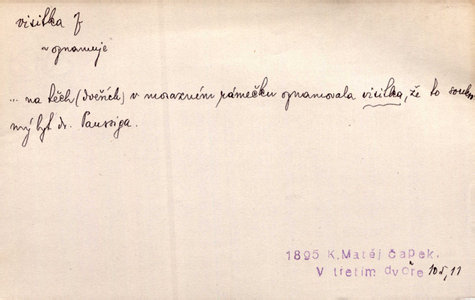 visitka f
~ oznamuje
... na těch (dveřích) v mosazném rámečku oznamovala visitka, že to soukro
mý byt dr. Paussiga.
1895 K.Matěj Čapek.
V třetím dvoře 105, 11